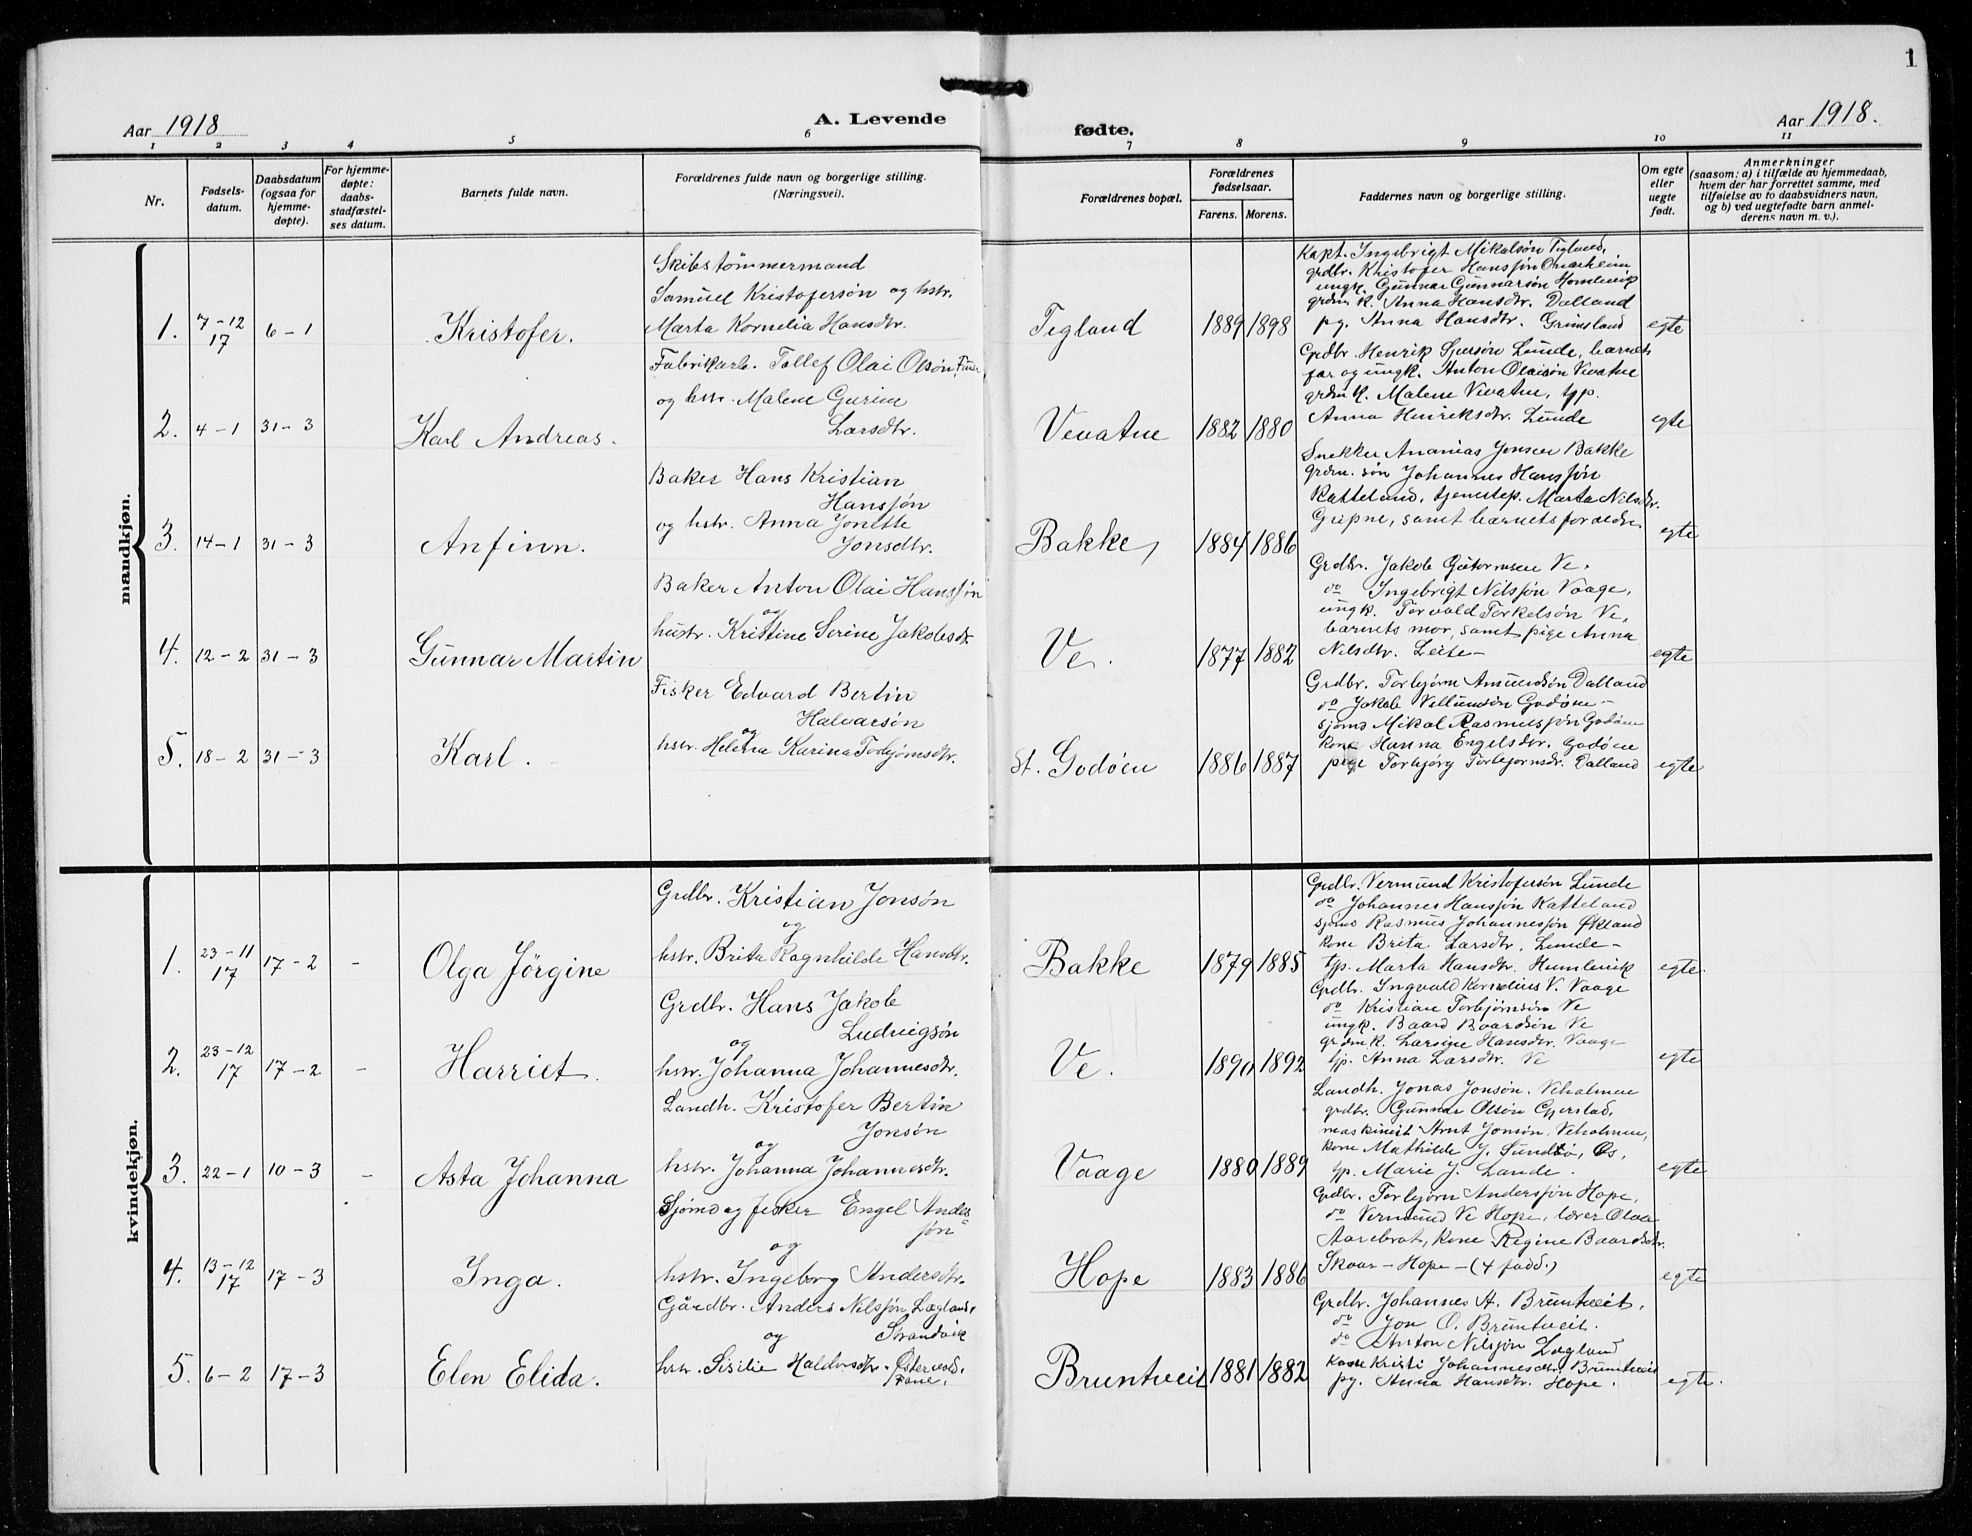 1
Aar 1918
A. Levende
fødte.
Aar 1918.
1 2 3 4 5 6 7 8 9 10 11
Nr.
Fødsels-
datum.
Daabsdatum
(ogsaa for
hjemme-
døpte).
For hjemme-
døpte:
daabs-
stadfæstel-
ses datum.
Barnets fulde navn.
Forældrenes fulde navn og borgerlige stilling.
(Næringsvei).
Forældrenes bopæl.
Forældrenes
fødselsaar.
Farens. Morens.
Faddernes navn og borgerlige stilling.
Om egte
eller
uegte
født.
Anmerkninger
(saasom: a) i tilfælde av hjemmedaab,
hvem der har forrettet samme, med
tilføielse av to daabsvidners navn,
og b) ved uegtefødte barn anmel-
derens navn m. v.).
mandkjøn.
1. 7-12 17 6-1 Kristofer.
Skibstømmermand
Samuel Kristofersøn og hstr.
Marta Kornelia Hansdtr.
Tegland 1889 1898
Kapt. Ingebrigt Mikalsøn Tegland,
grdbr. Kristofer Hansjøn Omarheim
ungk. Gunnar Gunnarsøn Homlevik
grdm k. Anna Hansdtr. Dalland
pg. Anna Hansdtr. Grimsland
egte
2. 4-1 31-3 Karl Andreas.
Fabrikarb. Tollef Olai Olsøn
og hstr. Malene Gurine
Larsdtr.
Vevatne 1882 1880
Grdbr. Henrik Sjursøn Lunde, barnets
far og ungk. Anton Olaisøn Vevatne
grdm k. Malene Vevatne, tjp.
Anna Henriksdtr. Lunde
egte
3. 14-1 31-3 Anfinn.
Baker Hans Kristian
Hansjøn
og hstr. Anna Jonette
Jonsdtr.
Bakke, 1884 1886
Snekker Ananias Jonsen Bakke
grdm. søn Johannes Hansjøn
Katteland, tjenestep. Marta Nilsdtr.
Gripne, samt barnets forældre
egte
4. 12-2 31-3 Gunnar Martin
Baker Anton Olai Hansjøn
og
hustr. Kristine Serine Jakobsdtr
Ve. 1877 1882
Grdbr. Jakob Gutormsen Ve.
do Ingebrigt Nilsjøn Vaage,
ungk. Torvald Torkelsøn Ve,
barnets mor, samt pige Anna
Nilsdtr. Leite-
egte
5. 18-2 31-3 Karl.
Fisker Edvard Bertin
Halvarsøn
og
hstr. Helena Karina Torbjørnsdtr.
St. Godøen 1886 1887
Grdbr. Torbjørn Amundsøn Dalland
do Jakob Villumsøn Godøen-
sjømd Mikal Rasmusjøn Godøen
kone Hanna Engelsdtr. Godøen
pige Torbjørg Torbjørnsdr. Dalland
egte
kvindekjøn.
1. 23-11 17 17-2 - Olga Jørgine
Grdbr. Kristian Jonsøn
og
hstr. Brita Ragnhilde Hansdtr.
Bakke 1879 1885
Grdbr. Vermund Kristofersøn Lunde
do Johannes Hansjøn Katteland
sjømd Rasmus Johannesjøn Økland
kone Brita Larsdtr. Lunde-
tjp. Marta Hansdtr. Humlevik
egte.
2. 23-12 17 17-2 - Harriet.
Grdbr. Hans Jakob
Ludvigsøn
og
hstr. Johanna Johannesdtr.
Ve. 1890 1892
Grdbr. Ingvald Kornelius V. Vaage
do Kristian Torbjørnsøn Ve
ungk. Baard Baardsøn Ve
grdm k. Larsine Hansdtr. Vaage
tjp. Anna Larsdtr. Ve
egte
3. 22-1 10-3 - Asta Johanna
Landh. Kristofer Bertin
Jonsøn
og
hstr. Johanna Johannesdtr.
Vaage 1880 1889
Landh. Jonas Jonsøn, Veholmen
grdbr. Gunnar Olsøn Gjerstad,
maskinist Arnt Jonsøn, Veholmen,
kone Mathilde J. Sundbø, Os,
tjp. Marie J. Lande.
egte
4. 13-12 17 17-3 Inga.
Sjømd og fisker Engel Anders
jøn
og
hstr. Ingeborg Andersdtr.
Hope 1883 1886
Grdbr. Torbjørn Andersjøn Hope,
do Vermund Ve Hope, lærer Olai
Aarebrot, kone Regine Baardsdtr.
Skaar - Hope - (4 fadd.)
egte
5. 6-2 17-3 Elen Elida.
Gårdbr. Anders Nilsjøn Lægland,
og Strandvik
hstr. Sisilie Haldorsdtr. Østervold,
Fane.
Bruntveit 1881 1882
Grdbr. Johannes A. Bruntveit,
do Jon O. Bruntveit.
do Anton Nilsjøn Lægland
kone Kristi Johannesdtr. Bruntveit
pg. Anna Hansdtr. Hope.
egte.